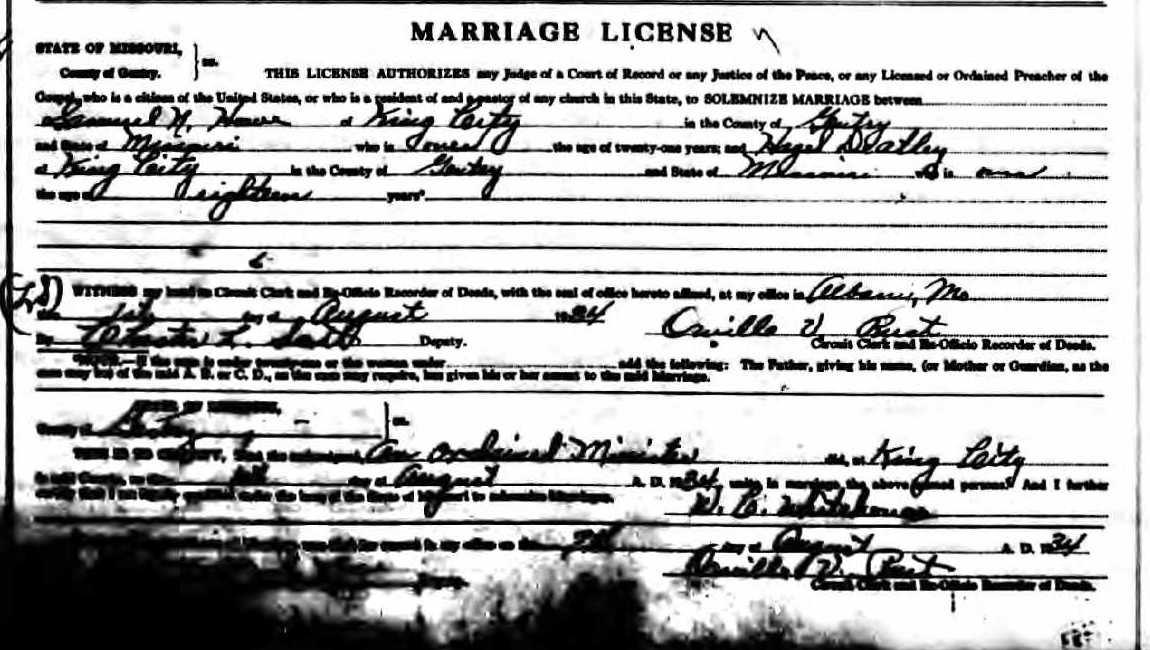 MARRIAGE LICENSE
STATE OF MISSOURI,
County of Gentry. } ss.
THIS LICENSE AUTHORIZES any Judge of a Court of Record or any Justice of the Peace, or any Licensed or Ordained Preacher of the
Gospel, who is a citizen of the United States, or who is a resident of and a pastor of any church in this State, to SOLEMNIZE MARRIAGE between
Samuel N. Howe of King City in the County of Gentry
and State of Missouri who is over the age of twenty-one years; and Hazel
of King City in the County of Gentry and State of Missouri who is over
the age of eighteen years*
(L S) WITNESS my hand as Circuit Clerk and Ex-Officio Recorder of Deeds, with the seal of office hereto affixed, at my office in Albany, Mo
day of August 1934 Orville V Rust
By Chester L. Deputy. Circuit Clerk and Ex-Officio Recorder of Deeds.
*NOTE.—If the man is under twenty-one or the woman under add the following: The Father, giving his name, (or Mother or Guardian, as the
case may be) of the said A. B. or C. D., as the case may require, has given his or her assent to the said Marriage.
STATE OF MISSOURI,
County of Gentry } ss.
THIS IS TO CERTIFY, that the undersigned, An Ordained Minister did, at King City
in said County, on the day of August A. D. 1934, unite in marriage the above named persons. And I further
certify that I am legally qualified under the laws of the State of Missouri to solemnize Marriages.
my office on the day of August A. D. 1934
Orville V. Rust
Deputy. Circuit Clerk and Ex-Officio Recorder of Deeds.